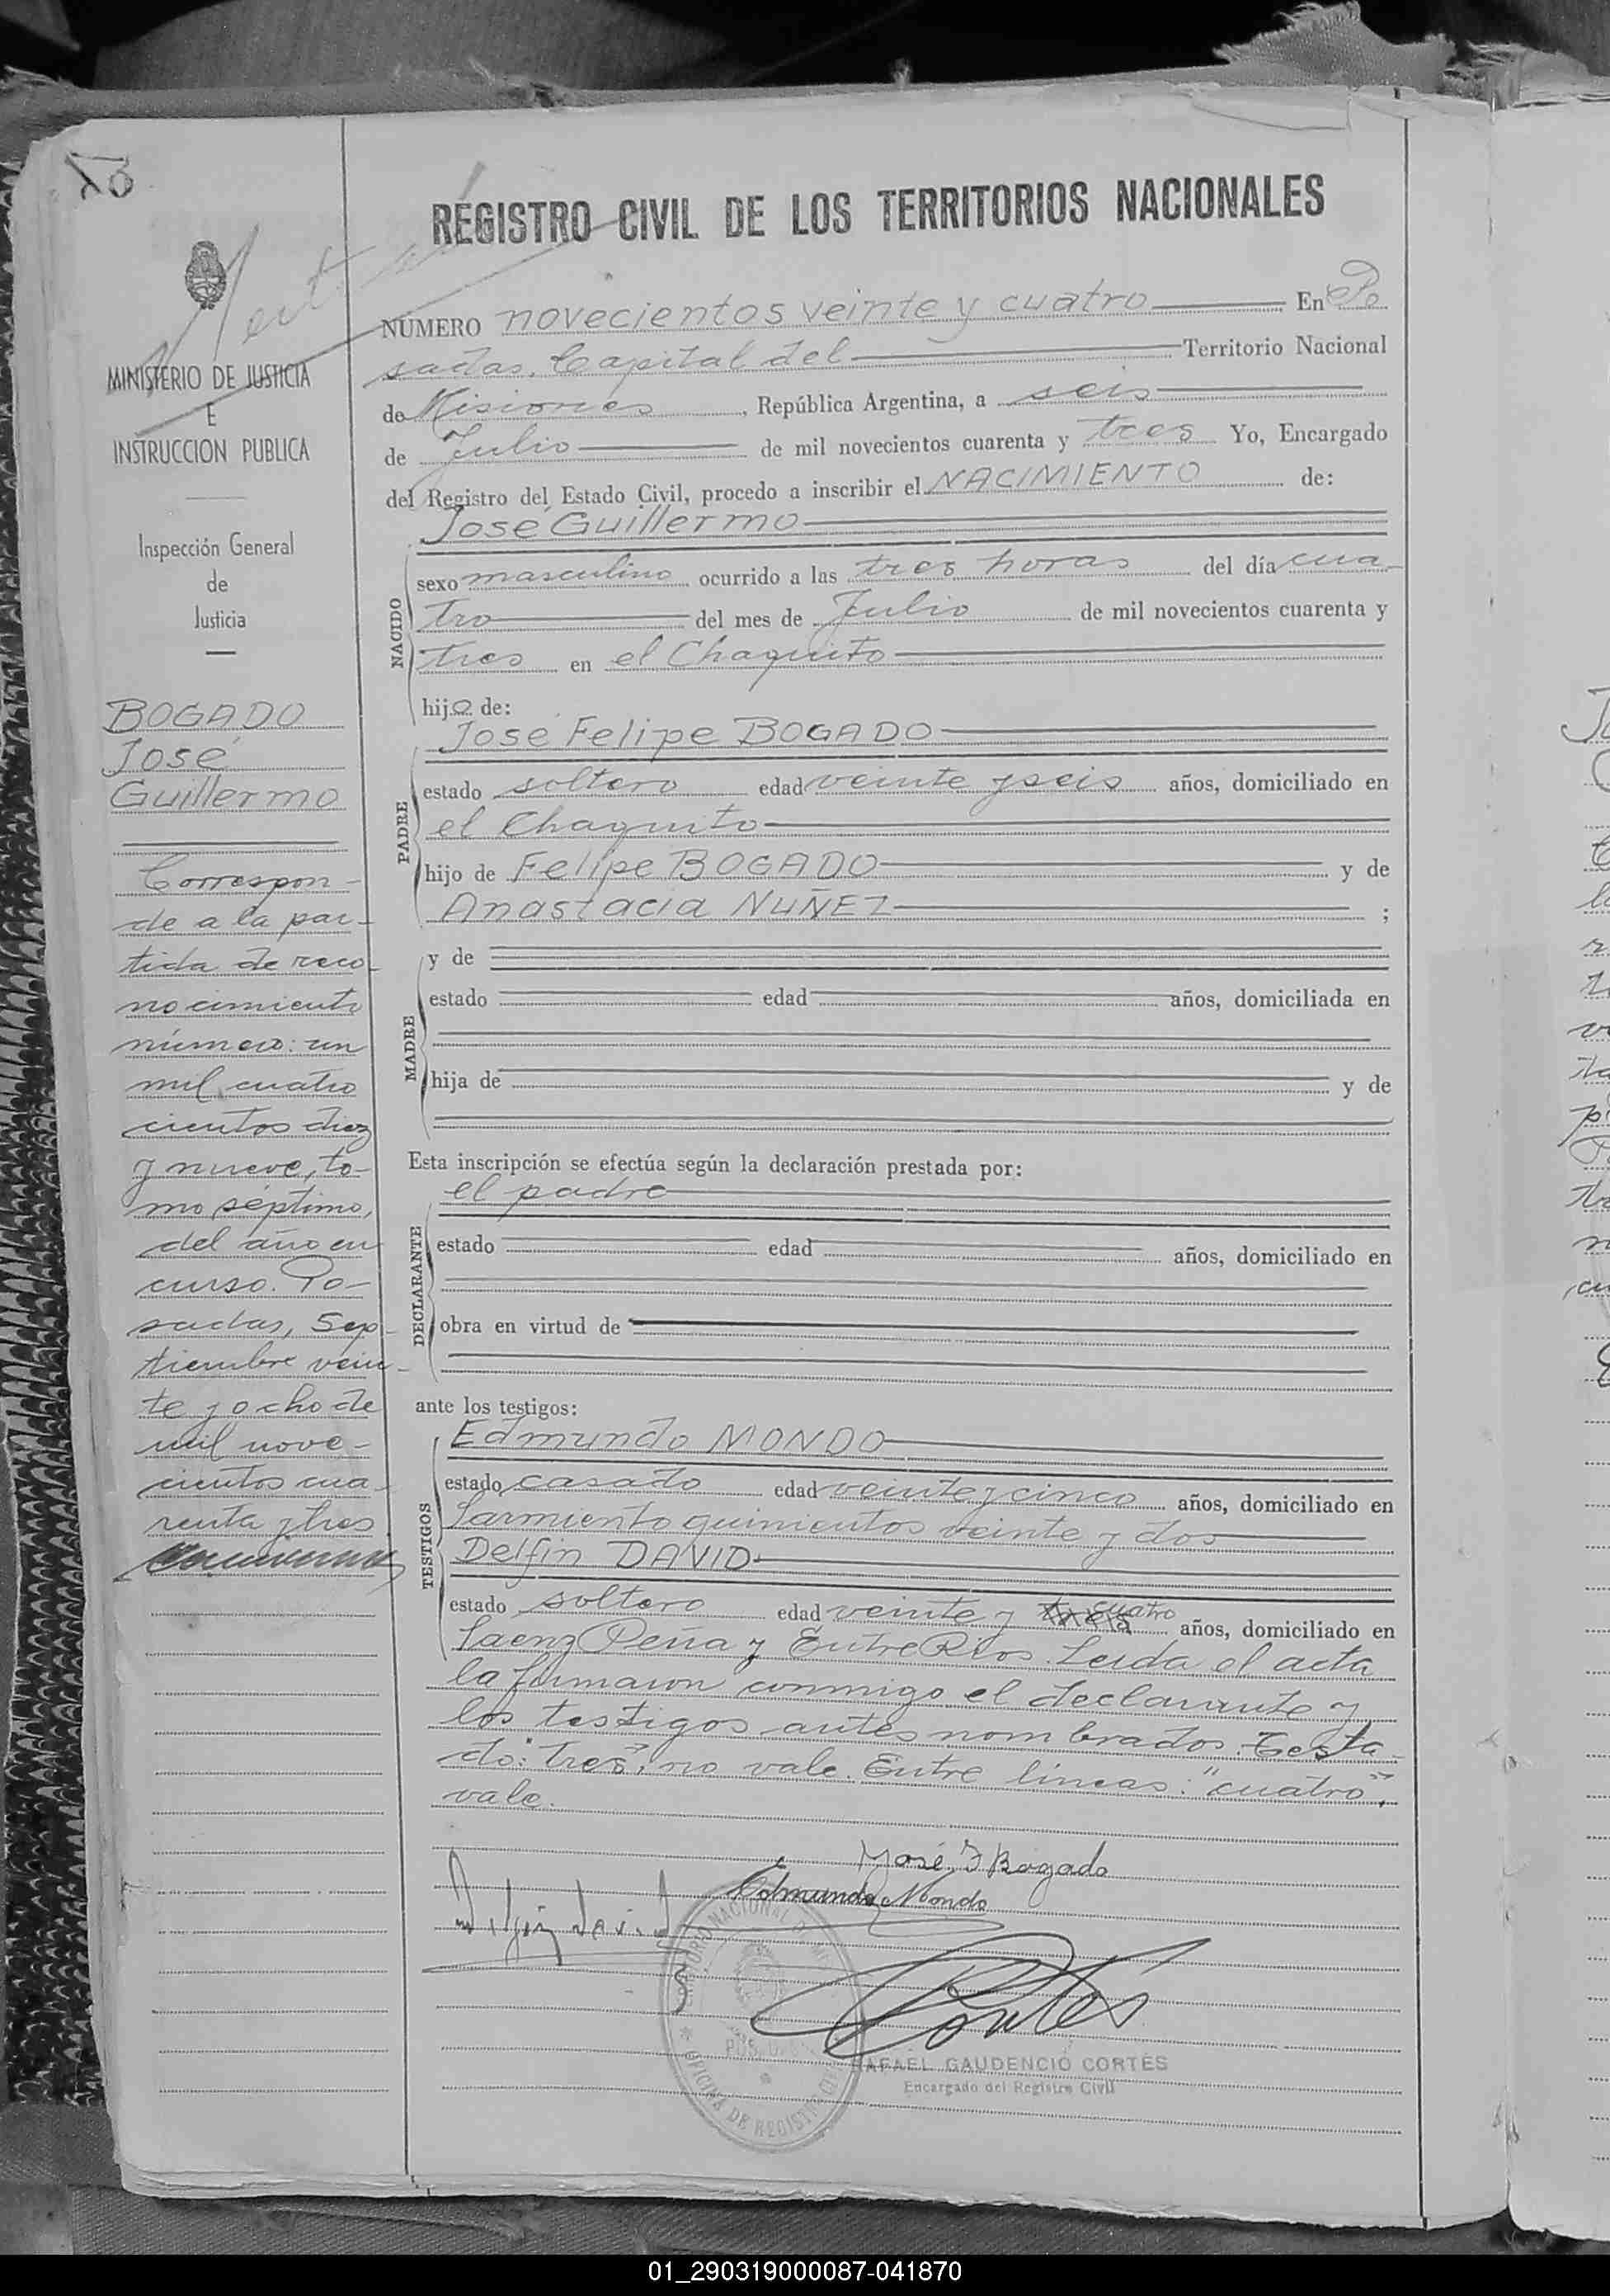 REGISTRO CIVIL DE LOS TERRITORIOS NACIONALES
MINISTERIO DE JUSTICIA
E
INSTRUCCION PUBLICA
Inspección General
de
Justicia
BOGADO
José
Guillermo
Correspon-
de a la par-
tida de reco-
nocimiento
número: un
mil cuatro
cientos diez
y nueve, to-
mo séptimo,
del año en
curso. Po-
sadas, Sep-
tiembre vein-
te y ocho de
mil nove-
cientos cua-
renta y tres
NUMERO novecientos veinte y cuatro En Po
sadas, Capital del Territorio Nacional
de Misiones, República Argentina, a seis
de Julio de mil novecientos cuarenta y tres Yo, Encargado
del Registro del Estado Civil, procedo a inscribir el NACIMIENTO de:
José Guillermo
NACIDO
sexo masculino ocurrido a las tres horas del día cua-
tro del mes de Julio de mil novecientos cuarenta y
tres en el Chaquito
hijo de:
José Felipe BOGADO
PADRE
estado soltero edad veinte y seis años, domiciliado en
el Chaquito
hijo de Felipe BOGADO y de
Anastacia NUÑEZ ;
MADRE
y de
estado edad años, domiciliada en
hija de y de
Esta inscripción se efectúa según la declaración prestada por:
el padre
DECLARANTE
estado edad años, domiciliado en
obra en virtud de
ante los testigos:
Edmundo MONDO
TESTIGOS
estado casado edad veinte y cinco años, domiciliado en
Sarmiento quinientos veinte y dos
Delfin DAVID
estado soltero edad veinte y tres cuatro años, domiciliado en
Saenz Peña y Entre Rios. Leida el acta
la firmaron conmigo el declarante y
los testigos antes nombrados. Testa-
do: "tres", no vale. Entre lineas: "cuatro",
vale.
José F Bogado
Edmundo Mondo
Delfin David
Cortés
RAFAEL GAUDENCIO CORTÉS
Encargado del Registro Civil
OFICINA DE REGISTRO
01_290319000087-041870